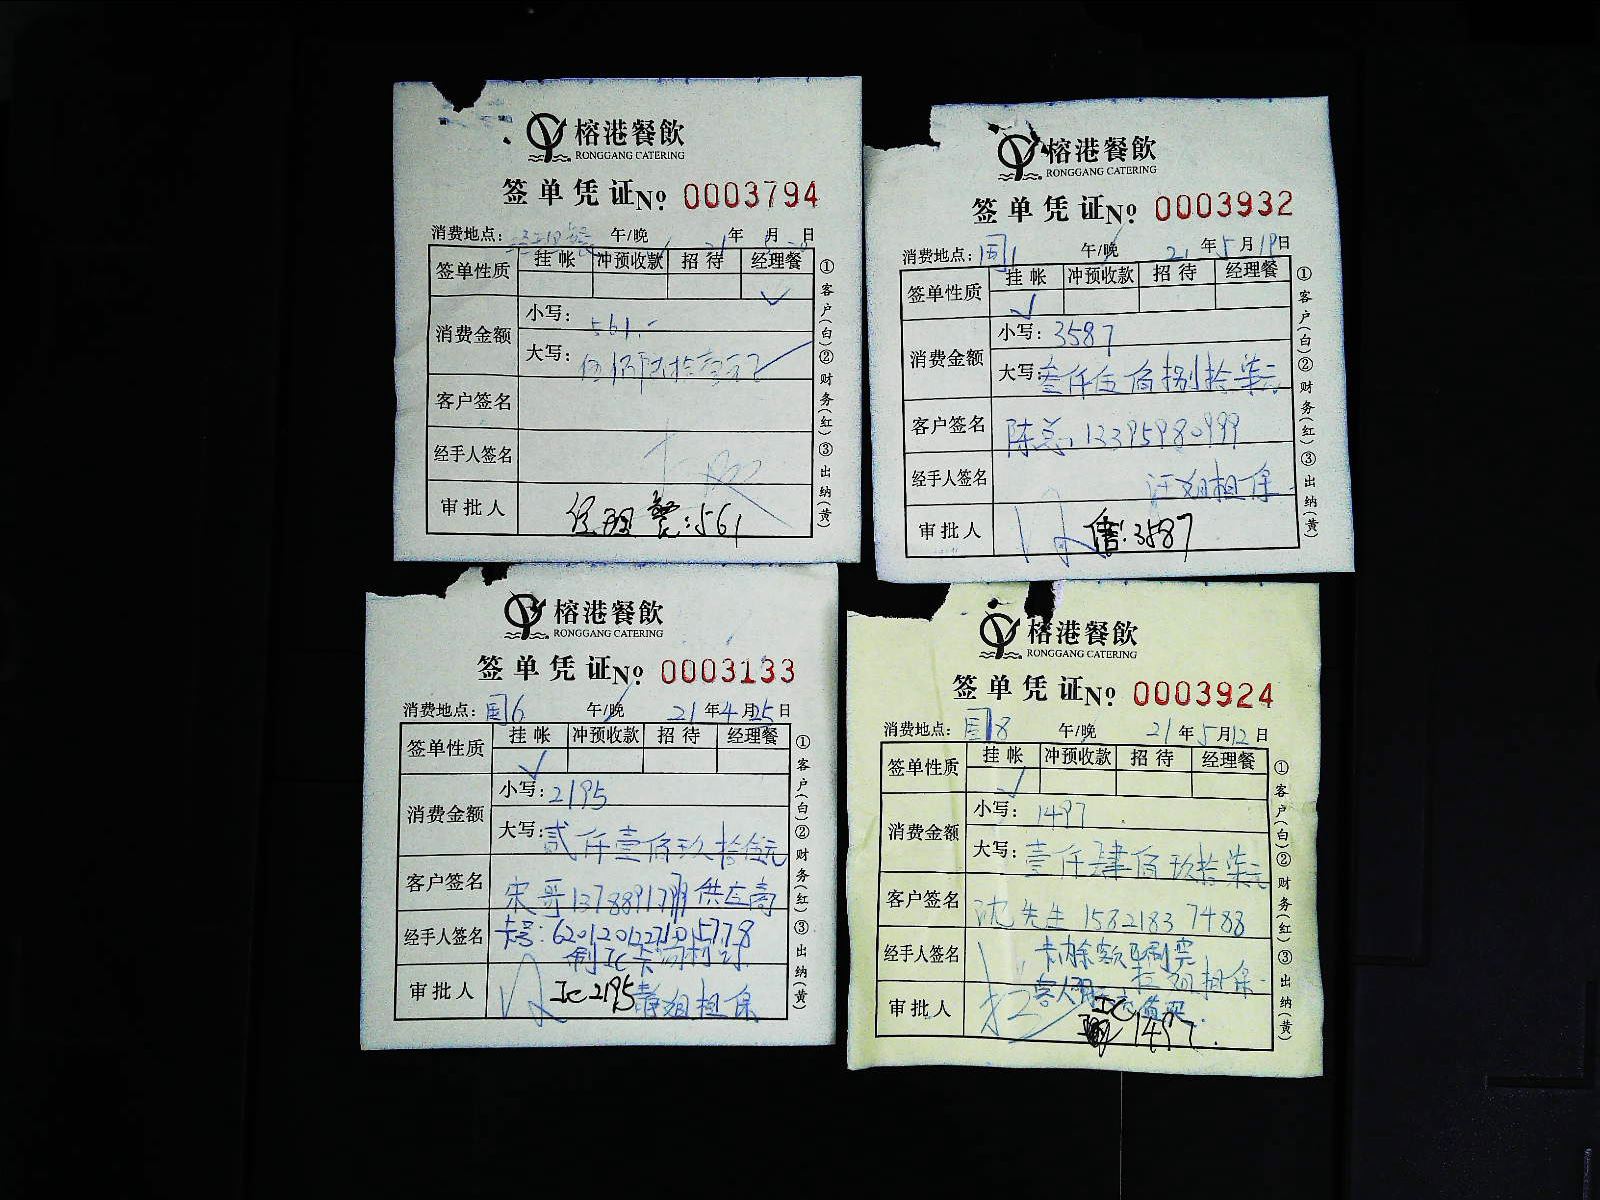 榕港餐飲
RONGGANG CATERING
签单凭证 No 0003794
消费地点: 经理餐 午/晚 21年 月 日
签单性质 挂帐 冲预收款 招待 经理餐
✓
消费金额 小写: 561.-
大写: 伍佰陆拾壹元正
客户签名
经手人签名
审批人 经理餐:561
①客户(白)②财务(红)③出纳(黄)
榕港餐飲
RONGGANG CATERING
签单凭证 No 0003932
消费地点: 国1 午/晚 21年5月19日
签单性质 挂帐 冲预收款 招待 经理餐
✓
消费金额 小写: 3587
大写: 叁仟伍佰捌拾柒元
客户签名 陈总 13395980999
经手人签名 汪姐担保
审批人 借:3587
①客户(白)②财务(红)③出纳(黄)
榕港餐飲
RONGGANG CATERING
签单凭证 No 0003133
消费地点: 国6 午/晚 21年4月25日
签单性质 挂帐 冲预收款 招待 经理餐
✓
消费金额 小写: 2195
大写: 贰仟壹佰玖拾伍元
客户签名 宋哥 供应商
经手人签名 卡号:
审批人 IC 2195 静姐担保
①客户(白)②财务(红)③出纳(黄)
榕港餐飲
RONGGANG CATERING
签单凭证 No 0003924
消费地点: 国8 午/晚 21年5月12日
签单性质 挂帐 冲预收款 招待 经理餐
✓
消费金额 小写: 1497
大写: 壹仟肆佰玖拾柒元
客户签名 沈先生 15821837488
经手人签名 卡内余额
姐担保
审批人 客人
IC 1497.
①客户(白)②财务(红)③出纳(黄)